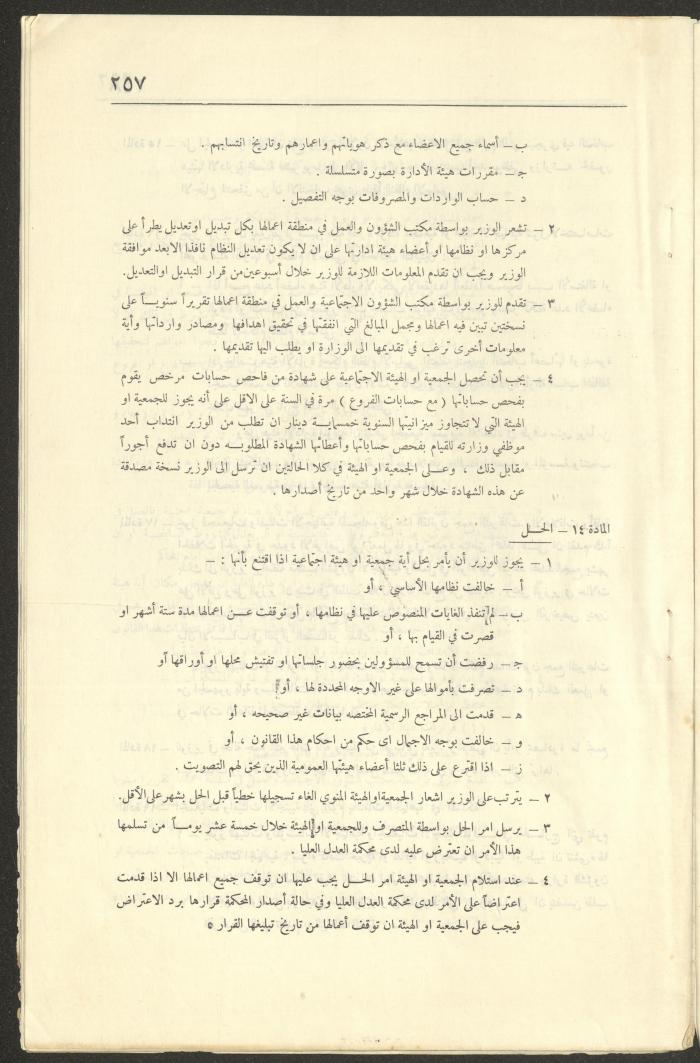 ٢٥٧
ب – أسماء جميع الاعضاء مع ذكر هوياتهم واعمارهم وتاريخ انتسابهم .
ج – مقررات هيئة الأدارة بصورة متسلسلة .
د – حساب الواردات والمصروفات بوجه التفصيل .
٢ – تشعر الوزير بواسطة مكتب الشؤون والعمل في منطقة اعمالها بكل تبديل اوتعديل يطرأ على
مركزها او نظامها او أعضاء هيئة ادارتها على ان لا يكون تعديل النظام نافذا الابعد موافقة
الوزير ويجب ان تقدم المعلومات اللازمة للوزير خلال أسبوعين من قرار التبديل اوالتعديل.
٣ – تقدم للوزير بواسطة مكتب الشؤون الاجتماعية والعمل في منطقة اعمالها تقريراً سنويـاً على
نسختين تبين فيه اعمالها ومجمل المبالغ التي انفقتها في تحقيق اهدافها ومصادر وارداتها وأية
معلومات أخرى ترغب في تقديمها الى الوزارة او يطلب اليها تقديمها .
٤ – يجب أن تحصل الجمعية او الهيئة الاجتماعية على شهادة من فاحص حسابات مرخص يقوم
بفحص حساباتها ( مع حسابات الفروع ) مرة في السنة على الاقل على أنه يجوز للجمعية او
الهيئة التي لا تتجاوز ميزانيتها السنوية خمسمايـة دينار ان تطلب من الوزير انتداب أحد
موظفي وزارته للقيام بفحص حساباتها وأعطائها الشهادة المطلوبـه دون ان تدفع أجوراً
مقابل ذلك ، وعـلى الجمعية او الهيئة في كلا الحالتين ان ترسل الى الوزير نسخة مصدقة
عن هذه الشهادة خلال شهر واحد من تاريخ أصدارها .
المادة ١٤ – الحـل
١ – يجوز للوزير أن يأمر بحل أية جمعية او هيئة اجتماعية اذا اقتنع بأنها : –
أ – خالفت نظامها الأساسي ، أو
ب – لم تنفذ الغايات المنصوص عليها في نظامها ، أو توقفت عـن اعمالها مدة ستة أشهر او
قصرت في القيام بها ، أو
ج – رفضت أن تسمح للمسؤولين بحضور جلساتها او تفتيش محلها او أوراقها أو
د – تصرفت بأموالها على غير الاوجه المحددة لها ، أو
ه – قدمت الى المراجع الرسمية المختصه بيانات غير صحيحه ، أو
و – خالفت بوجه الاجمال اى حكم من احكام هذا القانون ، أو
ز – اذا اقترع على ذلك ثلثا أعضاء هيئتها العمومية الذين يحق لهم التصويت .
٢ – يترتب على الوزير اشعار الجمعية اوالهيئة المنوي الغاء تسجيلها خطياً قبل الحل بشهر على الأقل.
٣ – يرسل امر الحل بواسطة المتصرف وللجمعية او الهيئة خلال خمسة عشر يومـاً من تسلمها
هذا الأمر ان تعترض عليه لدى محكمة العدل العليا .
٤ – عند استلام الجمعية او الهيئة امر الحـل يجب عليها ان توقف جميع اعمالها الا اذا قدمت
اعتراضاً على الأمر لدى محكمة العدل العليا وفي حالة أصدار المحكمة قرارها برد الاعتراض
فيجب على الجمعية او الهيئة ان توقف أعمالها من تاريخ تبليغها القرار .